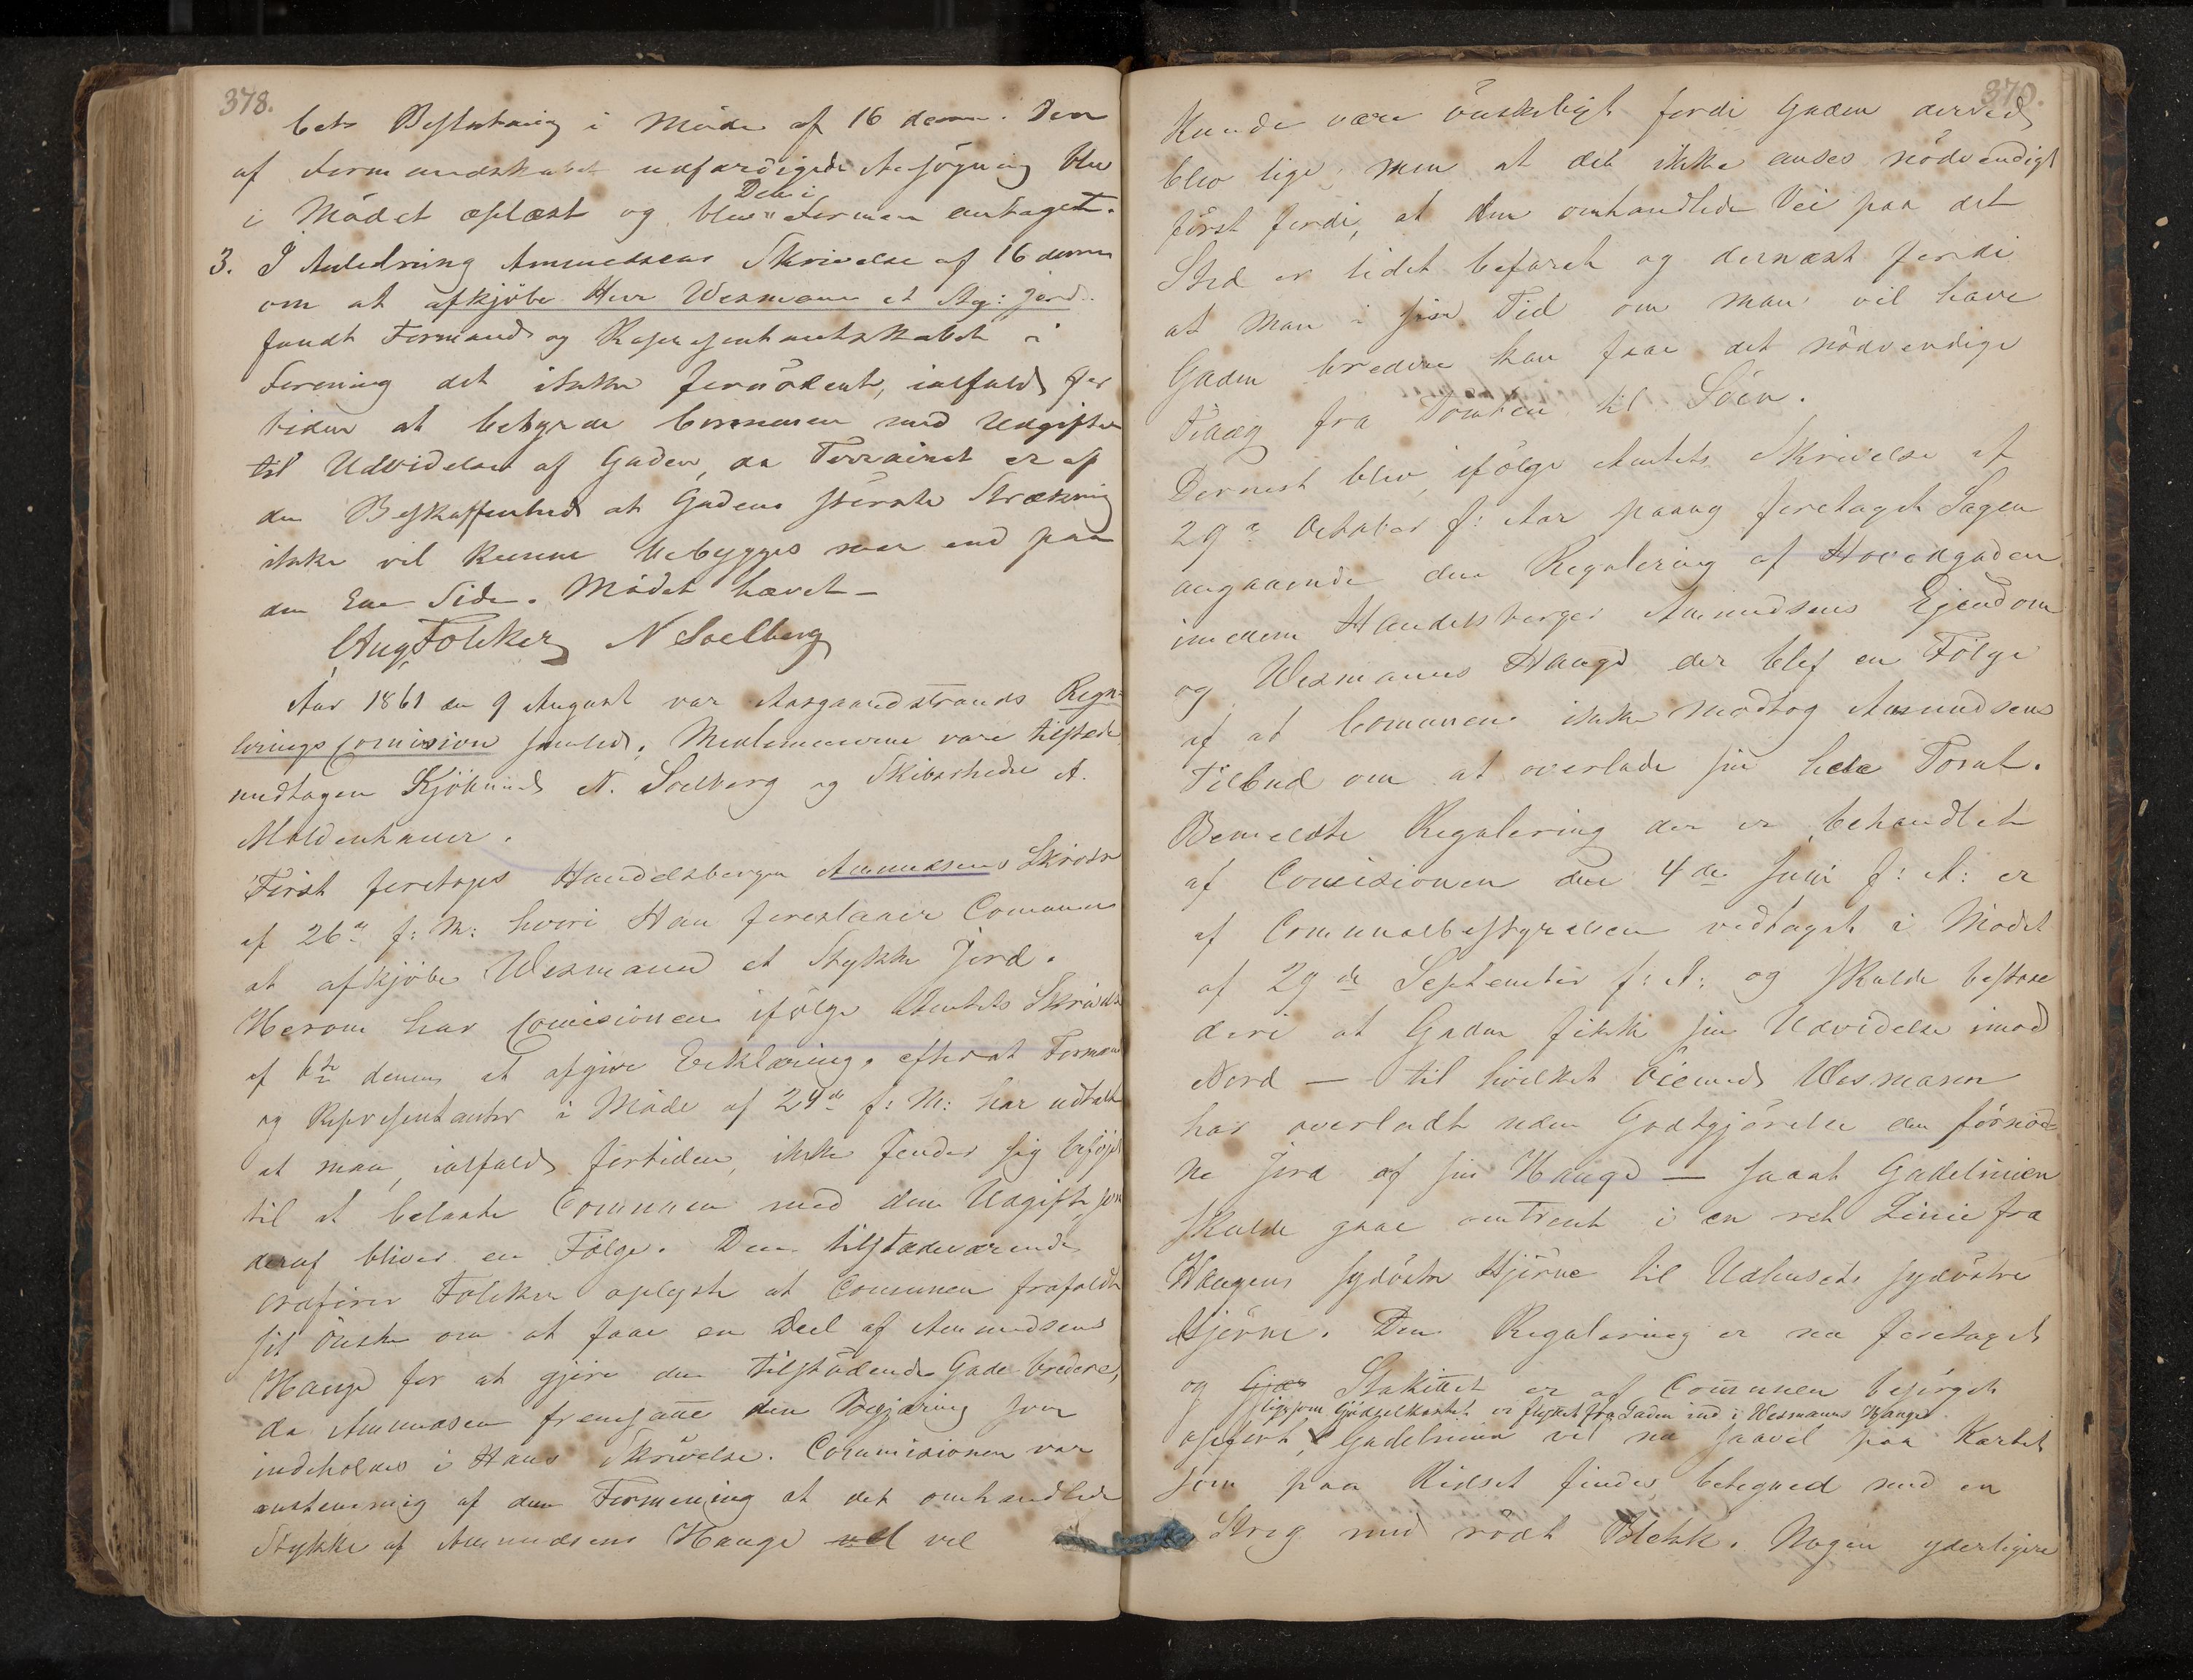 378.
bets Beslutning i Møde af 16 dennes. Den
af Formandskabet udfærdigede Ansøgning blev
Den i
i Mødet oplæst og blev " Formen antaget.
3. I Anledning Amundsens Skrivelse af 16 dennes
om at afkjøbe Herr Wesmann et Stg: Jord
fandt Formand og Representantskabet i
Forening det ikke fornødent, ialfald for
tiden at betynde Communen med Udgifter
til Udvidelse af Gaden, da Terrainet er af
den Beskaffenhed at Gadens største Strækning
ikke vil kunne bebygges mer end paa
den Ene Side. Mødet hævet –
Aug, Foleker N Soelberg
Aar 1861 den 9 August var Aasgaardstrands Regu-
lerings Comission samlet. Medlemmerne vare tilstæde
undtagen Kjøbmand N. Soelberg og Skibsrheder A.
Moldenhauer.
Først foretoges Handelsborger Amundsens Skrivelse
af 26de f: M: hvori Han foreslaaer Comunen
at afkjøbe Wesmann et Stykke Jord.
Herom har Comisionen ifølge Amtets Skrivelse
af 6te dennes at afgive Erklæring, efterat Formænd
og Representanter i Møde af 29de f: M: har udtalt
at man, ialfald fortiden, ikke finder sig beføjet
til at belaste Communen med den Udgift som
deraf bliver en Følge. Den tilstædeværende
Ordfører Foleker oplyste at Communen frafaldt
sit Ønske om at faae en Deel af Amundsens
Hauge for at gjøre den tilstødende Gade bredere,
da Amundsen fremsatte den Begjæring som
indeholdes i Hans Skrivelse. Commisionen var
enstemmig af den Formening at det omhandlede
Stykke af Amundsens Hauge vel vel
379.
kunde være ønskeligt fordi Gaden derved
blev lige, men at det ikke ansees nødvendigt
først fordi, at den omhandlede Vei paa det
Sted er lidet befaret og dernæst fordi
at man i sin Tid om man vil have
Gaden bredere kan faae det nødvendige
Tilæg fra Tomten til Søen.
Dernest blev ifølge Amtets Skrivelse af
29de October f: Aar paany foretaget Sagen
angaaende den Regulering af Hovedgaden
imellem Handelsborger Amundsens Ejendom
og Wesmanns Hauge der blef en Følge
af at Comunen ikke modtog Amundsens
Tilbud om at overlade sin hele Tomt.
Bemeldte Regulering der er behandlet
af Comisionen den 4de Juni f: A: er
af Communalbestyrelsen vedtaget i Mødet
af 29de September f: A: og skulde bestaae
deri at Gaden fikk sin Udvidelse imod
Nord – til hvilket Øiemed Wesmann
har overladt uden Godtgjørelse den fornød-
ne Jord af sin Hauge – saaat Gadelinien
skulde gaae omtrent i en ret Linie fra
Haugens sydøstre Hjørne til Udhusets sydøstre
Hjørne. Den Regulering er nu foretaget
og Gjær Stakittet er af Communen besørget
ligesom Gjødselkastet er flyttet fra Gaden ind i Wesmanns Hauge
opført, Gadelinien vil nu saavel paa Kartet
som paa Ridset findes betegned med en
Streg med rødt Blekk. Nogen yderligere